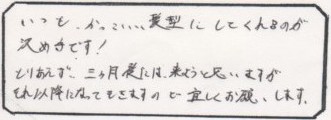 いつも、かっこいい髪型にしてくれるのが
決めきです!
とりあえず、三ヶ月後には、来ようと思いますが
それ以降になってもきますので宜しくお願いします。